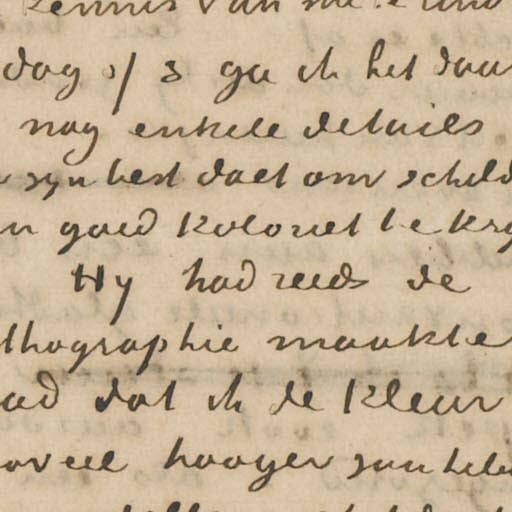 kennis van
dag of 3 ga ik het daar
nog enkele details
zyn best doet om schild
n goed koloriet te kry
Hy had reeds de
thographie maakte
ad dat ik de kleur
oveel hooger zou heb